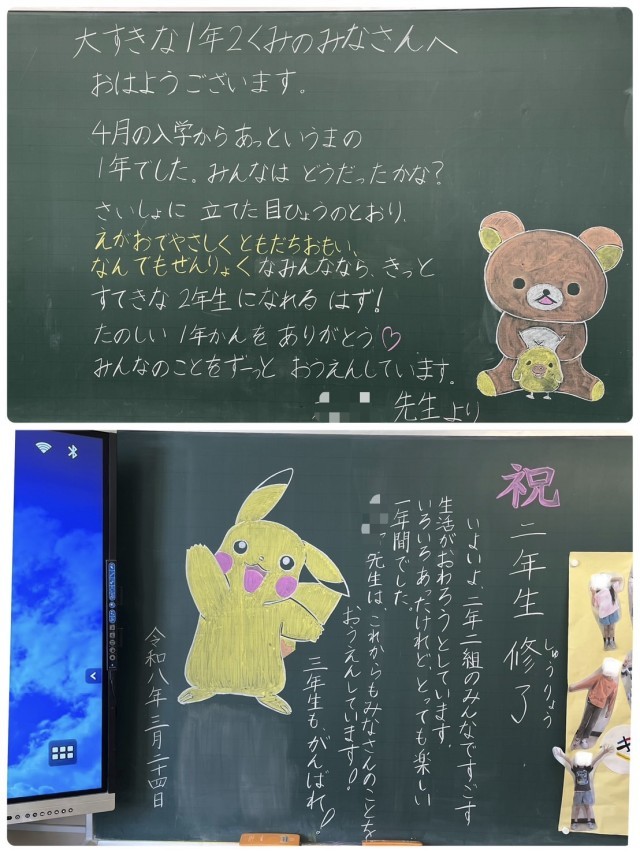 大すきな1年2くみのみなさんへ
おはようございます。
4月の入学からあっというまの
1年でした。みんなは どうだったかな?
さいしょに 立てた目ひょうのとおり、
えがおでやさしく ともだちおもい、
なんでもせんりょくなみんななら、きっと
すてきな 2年生になれる はず!
たのしい 1年かんを ありがとう♡
みんなのことをずーっと おうえんしています。
先生より
祝
二年生 修了
しゅうりょう
いよいよ、二年二組のみんなですごす
生活がおわろうとしています。
いろいろあったけれど、とっても楽しい
一年間でした。
先生は、これからもみなさんのことを
おうえんしています!
三年生も、がんばれ!
令和八年 三月二十四日